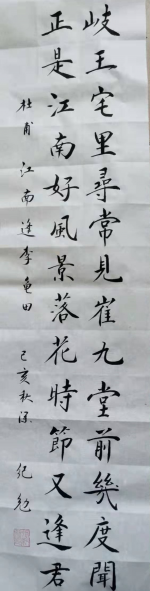 岐王宅里尋常見崔九堂前幾度聞
正是江南好風景落花時節又逢君
杜甫 江南逢李龜田 己亥秋深 纪勉